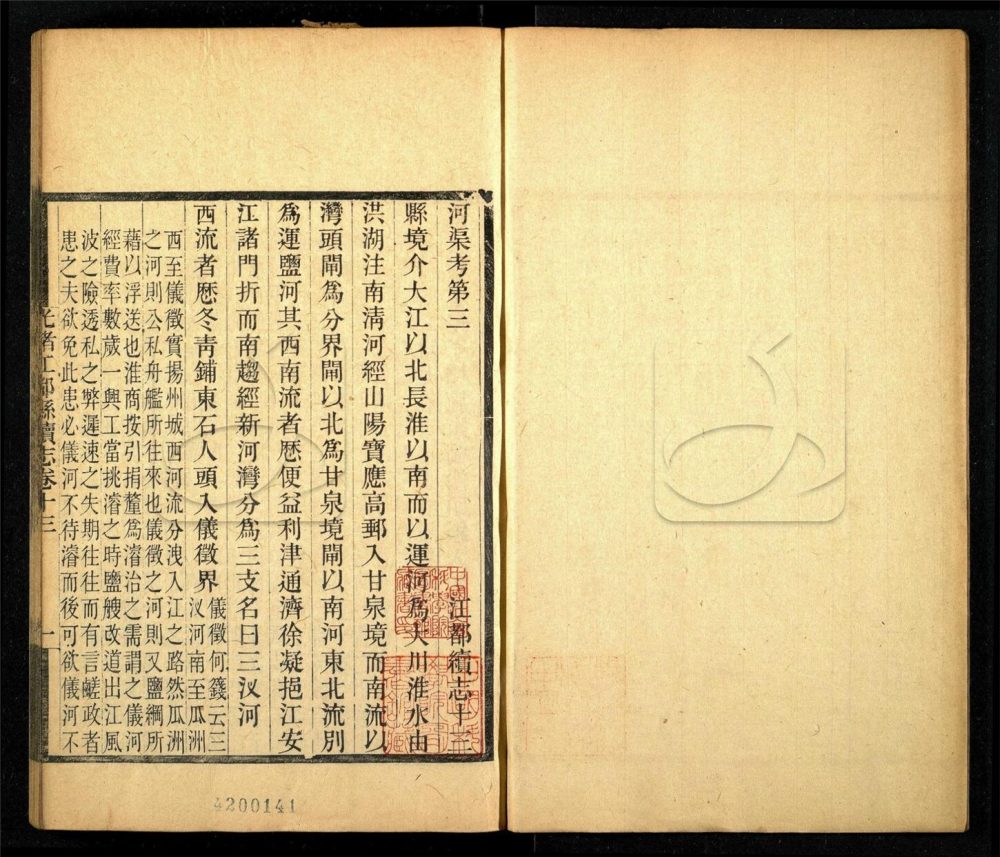 河渠考第三 江都續志十三
縣境介大江以北長淮以南而以運河爲大川淮水由
洪湖注南清河經山陽寶應高郵入甘泉境而南流以
灣頭閘爲分界閘以北爲甘泉境閘以南河東北流別
爲運鹽河其西南流者厯便益利津通濟徐凝挹江安
江諸門折而南趨經新河灣分爲三支名曰三汊河
西流者厯冬靑鋪東石人頭入儀徵界
儀徵何籛云三
汊河南至瓜洲
西至儀徵實揚州城西河流分洩入江之路然瓜洲
之河則公私舟艦所往來也儀徵之河則又鹽綱所
藉以浮送也淮商按引捐釐爲濬治之需謂之儀河
經費率數歲一興工當挑濬之時鹽艘改道出江風
波之險透私之弊遲速之失期往往而有言鹺政者
患之夫欲免此患必儀河不待濬而後可欲儀河不
光緒江都縣續志卷十三
一
4200141